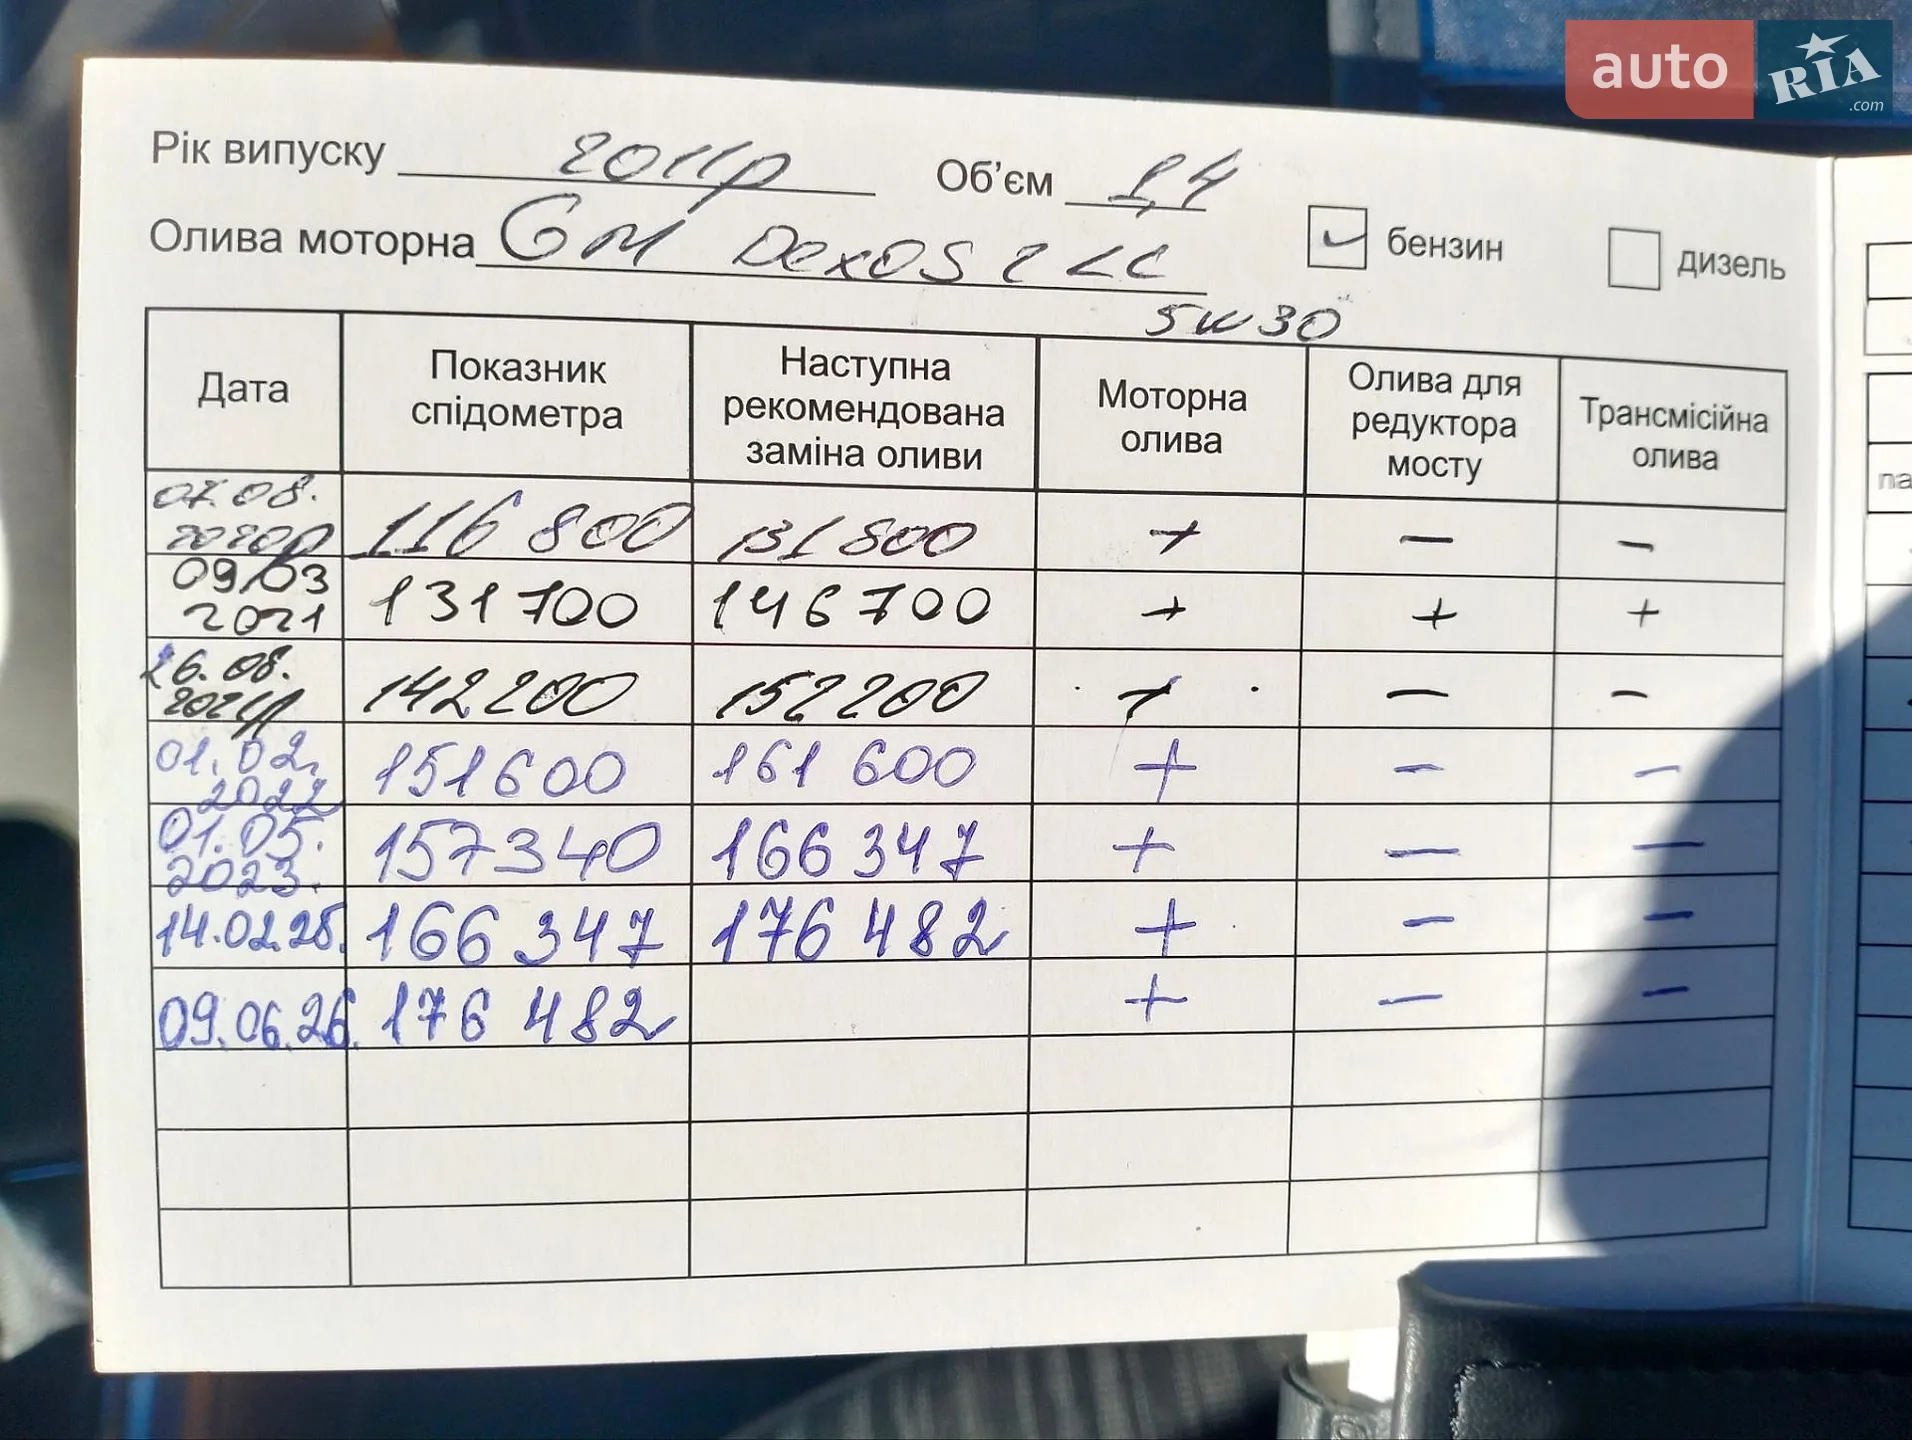 auto RIA.com
Рік випуску 2011р Об'єм 1,4
Олива моторна GM Dexos 2 LC бензин дизель
5W30
Дата Показник спідометра Наступна рекомендована заміна оливи Моторна олива Олива для редуктора мосту Трансмісійна олива
07.08.2020р 116 800 131 800 + — —
09/03 2021 131 700 146 700 + + +
26.08.2021р 142 200 152 200 + — —
01.02.2022 151600 161 600 + — —
01.05.2023. 157340 166 347 + — —
14.02.25. 166 347 176 482 + — —
09.06.26. 176 482 + — —